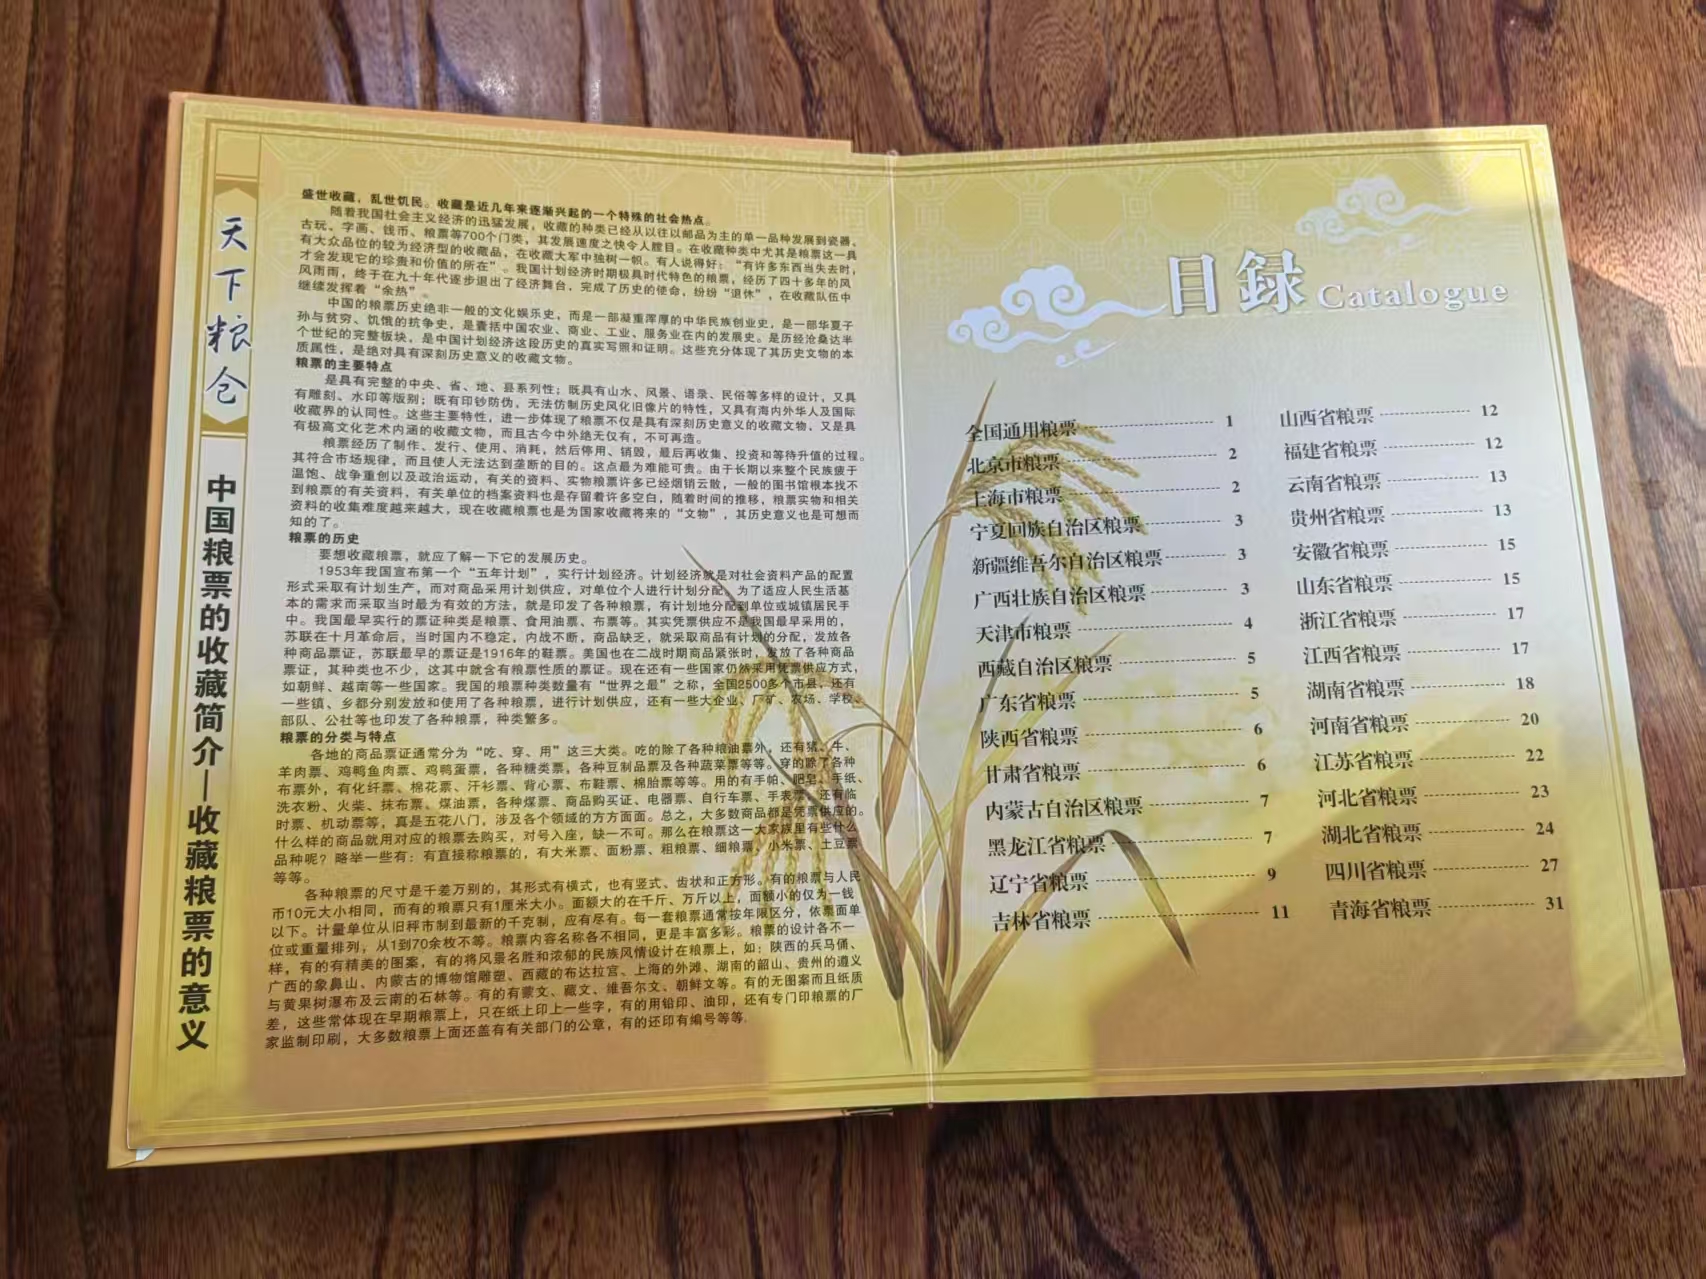 天下粮仓
中国粮票的收藏简介—收藏粮票的意义
盛世收藏，乱世饥民。收藏是近几年来逐渐兴起的一个特殊的社会热点。
随着我国社会主义经济的迅猛发展，收藏的种类已经从以往以邮品为主的单一品种发展到瓷器、
古玩、字画、钱币、粮票等700个门类，其发展速度之快令人膛目。在收藏种类中尤其是粮票这一具
有大众品位的较为经济型的收藏品，在收藏大军中独树一帜。有人说得好：“有许多东西当失去时，
才会发现它的珍贵和价值的所在”。我国计划经济时期极具时代特色的粮票，经历了四十多年的风
风雨雨，终于在九十年代逐步退出了经济舞台，完成了历史的使命，纷纷“退休”，在收藏队伍中
继续发挥着“余热”。
中国的粮票历史绝非一般的文化娱乐史，而是一部凝重浑厚的中华民族创业史，是一部华夏子
孙与贫穷、饥饿的抗争史，是囊括中国农业、商业、工业、服务业在内的发展史。是历经沧桑达半
个世纪的完整板块，是中国计划经济这段历史的真实写照和证明。这些充分体现了其历史文物的本
质属性，是绝对具有深刻历史意义的收藏文物。
粮票的主要特点
是具有完整的中央、省、地、县系列性；既具有山水、风景、语录、民俗等多样的设计，又具
有雕刻、水印等版别；既有印钞防伪，无法仿制历史风化旧像片的特性，又具有海内外华人及国际
收藏界的认同性。这些主要特性，进一步体现了粮票不仅是具有深刻历史意义的收藏文物、又是具
有极高文化艺术内涵的收藏文物，而且古今中外绝无仅有，不可再造。
粮票经历了制作、发行、使用、消耗，然后停用、销毁，最后再收集、投资和等待升值的过程。
其符合市场规律，而且使人无法达到垄断的目的。这点最为难能可贵。由于长期以来整个民族疲于
温饱、战争重创以及政治运动，有关的资料、实物粮票许多已经烟销云散，一般的图书馆根本找不
到粮票的有关资料，有关单位的档案资料也是存留着许多空白，随着时间的推移，粮票实物和相关
资料的收集难度越来越大，现在收藏粮票也是为国家收藏将来的“文物”，其历史意义也是可想而
知的了。
粮票的历史
要想收藏粮票，就应了解一下它的发展历史。
1953年我国宣布第一个“五年计划”，实行计划经济。计划经济就是对社会资料产品的配置
形式采取有计划生产，而对商品采用计划供应，对单位个人进行计划分配。为了适应人民生活基
本的需求而采取当时最为有效的方法，就是印发了各种粮票，有计划地分配到单位或城镇居民手
中。我国最早实行的票证种类是粮票、食用油票、布票等。其实凭票供应不是我国最早采用的，
苏联在十月革命后，当时国内不稳定，内战不断，商品缺乏，就采取商品有计划的分配，发放各
种商品票证，苏联最早的票证是1916年的鞋票。美国也在二战时期商品紧张时，发放了各种商品
票证，其种类也不少，这其中就含有粮票性质的票证。现在还有一些国家仍然采用凭票供应方式，
如朝鲜、越南等一些国家。我国的粮票种类数量有“世界之最”之称，全国2500多个市县，还有
一些镇、乡都分别发放和使用了各种粮票，进行计划供应，还有一些大企业、厂矿、农场、学校、
部队、公社等也印发了各种粮票，种类繁多。
粮票的分类与特点
各地的商品票证通常分为“吃、穿、用”这三大类。吃的除了各种粮油票外，还有猪、牛、
羊肉票、鸡鸭鱼肉票、鸡鸭蛋票，各种糖类票，各种豆制品票及各种蔬菜票等等。穿的除了各种
布票外，有化纤票、棉花票、汗衫票、背心票、布鞋票、棉胎票等等。用的有手帕、肥皂、手纸、
洗衣粉、火柴、抹布票、煤油票，各种煤票、商品购买证、电器票、自行车票、手表票，还有临
时票、机动票等，真是五花八门，涉及各个领域的方方面面。总之，大多数商品都是凭票供应的。
什么样的商品就用对应的粮票去购买，对号入座，缺一不可。那么在粮票这一大家族里有些什么
品种呢？略举一些有：有直接称粮票的，有大米票、面粉票、粗粮票、细粮票、小米票、土豆票
等等。
各种粮票的尺寸是千差万别的，其形式有横式，也有竖式、齿状和正方形。有的粮票与人民
币10元大小相同，而有的粮票只有1厘米大小。面额大的在千斤、万斤以上，面额小的仅为一钱
以下。计量单位从旧秤市制到最新的千克制，应有尽有。每一套粮票通常按年限区分，依票面单
位或重量排列，从1到70余枚不等。粮票内容名称各不相同，更是丰富多彩。粮票的设计各不一
样，有的有精美的图案，有的将风景名胜和浓郁的民族风情设计在粮票上，如：陕西的兵马俑、
广西的象鼻山、内蒙古的博物馆雕塑、西藏的布达拉宫、上海的外滩、湖南的韶山、贵州的遵义
与黄果树瀑布及云南的石林等。有的有蒙文、藏文、维吾尔文、朝鲜文等。有的无图案而且纸质
差，这些常体现在早期粮票上，只在纸上印上一些字，有的用铅印、油印，还有专门印粮票的厂
家监制印刷，大多数粮票上面还盖有有关部门的公章，有的还印有编号等等.
目録 Catalogue
全国通用粮票 1
北京市粮票 2
上海市粮票 2
宁夏回族自治区粮票 3
新疆维吾尔自治区粮票 3
广西壮族自治区粮票 3
天津市粮票 4
西藏自治区粮票 5
广东省粮票 5
陕西省粮票 6
甘肃省粮票 6
内蒙古自治区粮票 7
黑龙江省粮票 7
辽宁省粮票 9
吉林省粮票 11
山西省粮票 12
福建省粮票 12
云南省粮票 13
贵州省粮票 13
安徽省粮票 15
山东省粮票 15
浙江省粮票 17
江西省粮票 17
湖南省粮票 18
河南省粮票 20
江苏省粮票 22
河北省粮票 23
湖北省粮票 24
四川省粮票 27
青海省粮票 31